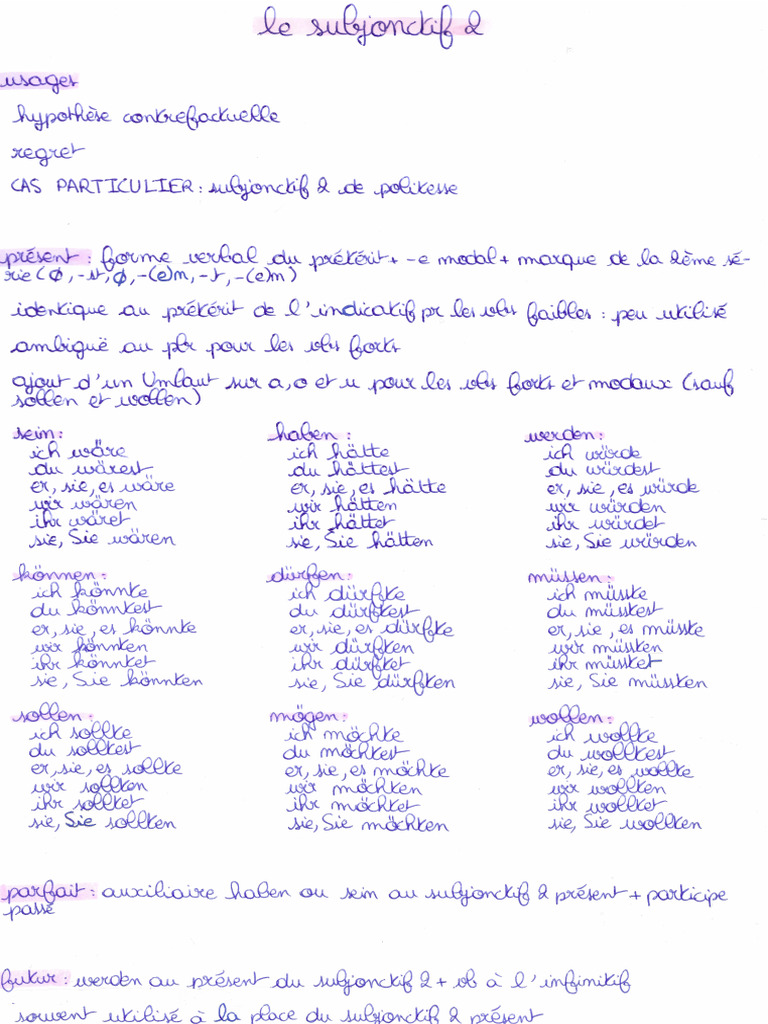 le subjonctif 2
usages
hypothèse contrefactuelle
regret
CAS PARTICULIER : subjonctif 2 de politesse
présent : forme verbal du prétérit + -e modal + marque de la 2ème sé-
rie (Ø, -st, Ø, -(e)n, -t, -(e)n)
identique au prétérit de l'indicatif pr les vbs faibles : peu utilisé
ambiguë au plr pour les vbs forts
ajout d'un Umlaut sur a, o et u pour les vbs forts et modaux (sauf
sollen et wollen)
sein : haben : werden :
ich wäre ich hätte ich würde
du wärest du hättest du würdest
er, sie, es wäre er, sie, es hätte er, sie, es würde
wir wären wir hätten wir würden
ihr wäret ihr hättet ihr würdet
sie, Sie wären sie, Sie hätten sie, Sie würden
können : dürfen : müssen :
ich könnte ich dürfte ich müsste
du könntest du dürftest du müsstest
er, sie, es könnte er, sie, es dürfte er, sie, es müsste
wir könnten wir dürften wir müssten
ihr könntet ihr dürftet ihr müsstet
sie, Sie könnten sie, Sie dürften sie, Sie müssten
sollen : mögen : wollen :
ich sollte ich möchte ich wollte
du solltest du möchtest du wolltest
er, sie, es sollte er, sie, es möchte er, sie, es wollte
wir sollten wir möchten wir wollten
ihr solltet ihr möchtet ihr wolltet
sie, Sie sollten sie, Sie möchten sie, Sie wollten
parfait : auxiliaire haben ou sein au subjonctif 2 présent + participe
passé
futur : werden au présent du subjonctif 2 + vb à l'infinitif
souvent utilisé à la place du subjonctif 2 présent